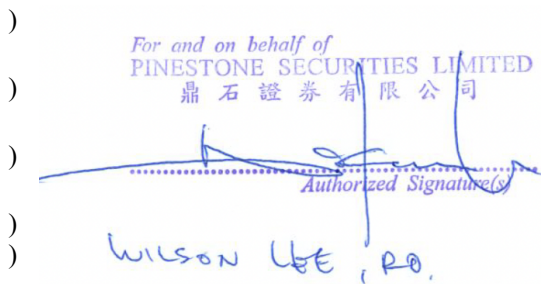 )
For and on behalf of
) PINESTONE SECURITIES LIMITED
鼎石證券有限公司
)
Authorized Signature(s)
)
) WILSON LEE, RO.